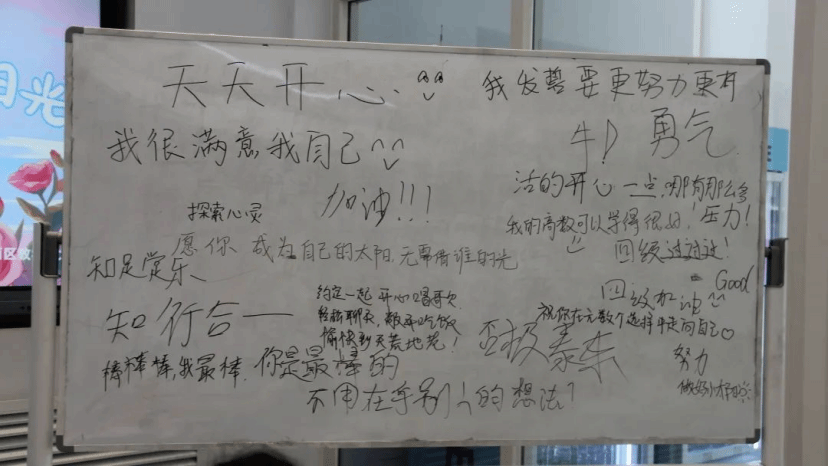 天天开心
我发誓要更努力更有
勇气
我很满意我自己
加油!!!
活的开心一点,哪有那么多
压力!
探索心灵
我的高数可以学得很好!
愿你成为自己的太阳,无需借谁的光
四级过过过!
知足常乐
Good
四级加油
约定一起开心唱歌
知行合一
祝你在无数个选择中走向自己
愉快到天荒地老!
否极泰来
棒棒棒,我最棒.
你是最棒的
努力
不用在乎别人的想法!